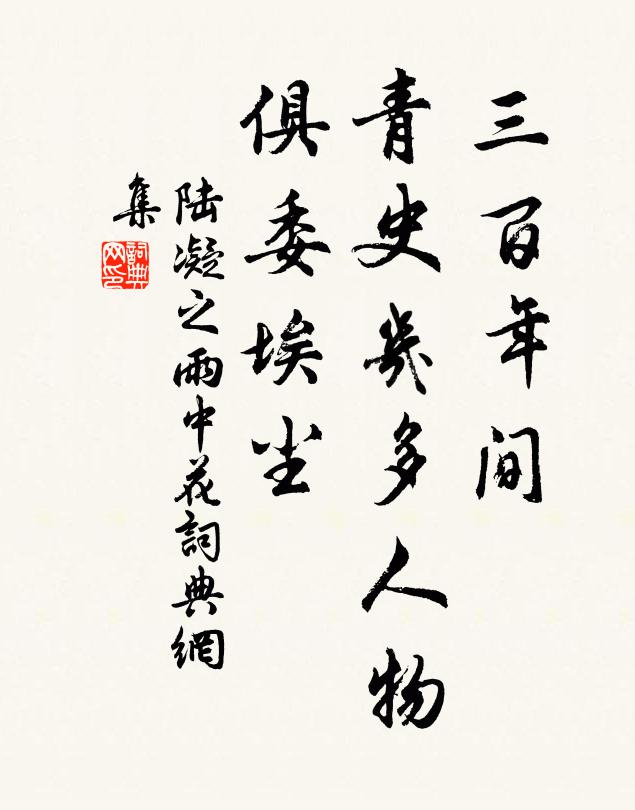 三百年间
青史幾多人物
俱委埃尘
陆凝之雨中花詞典網
集
詞典
网印